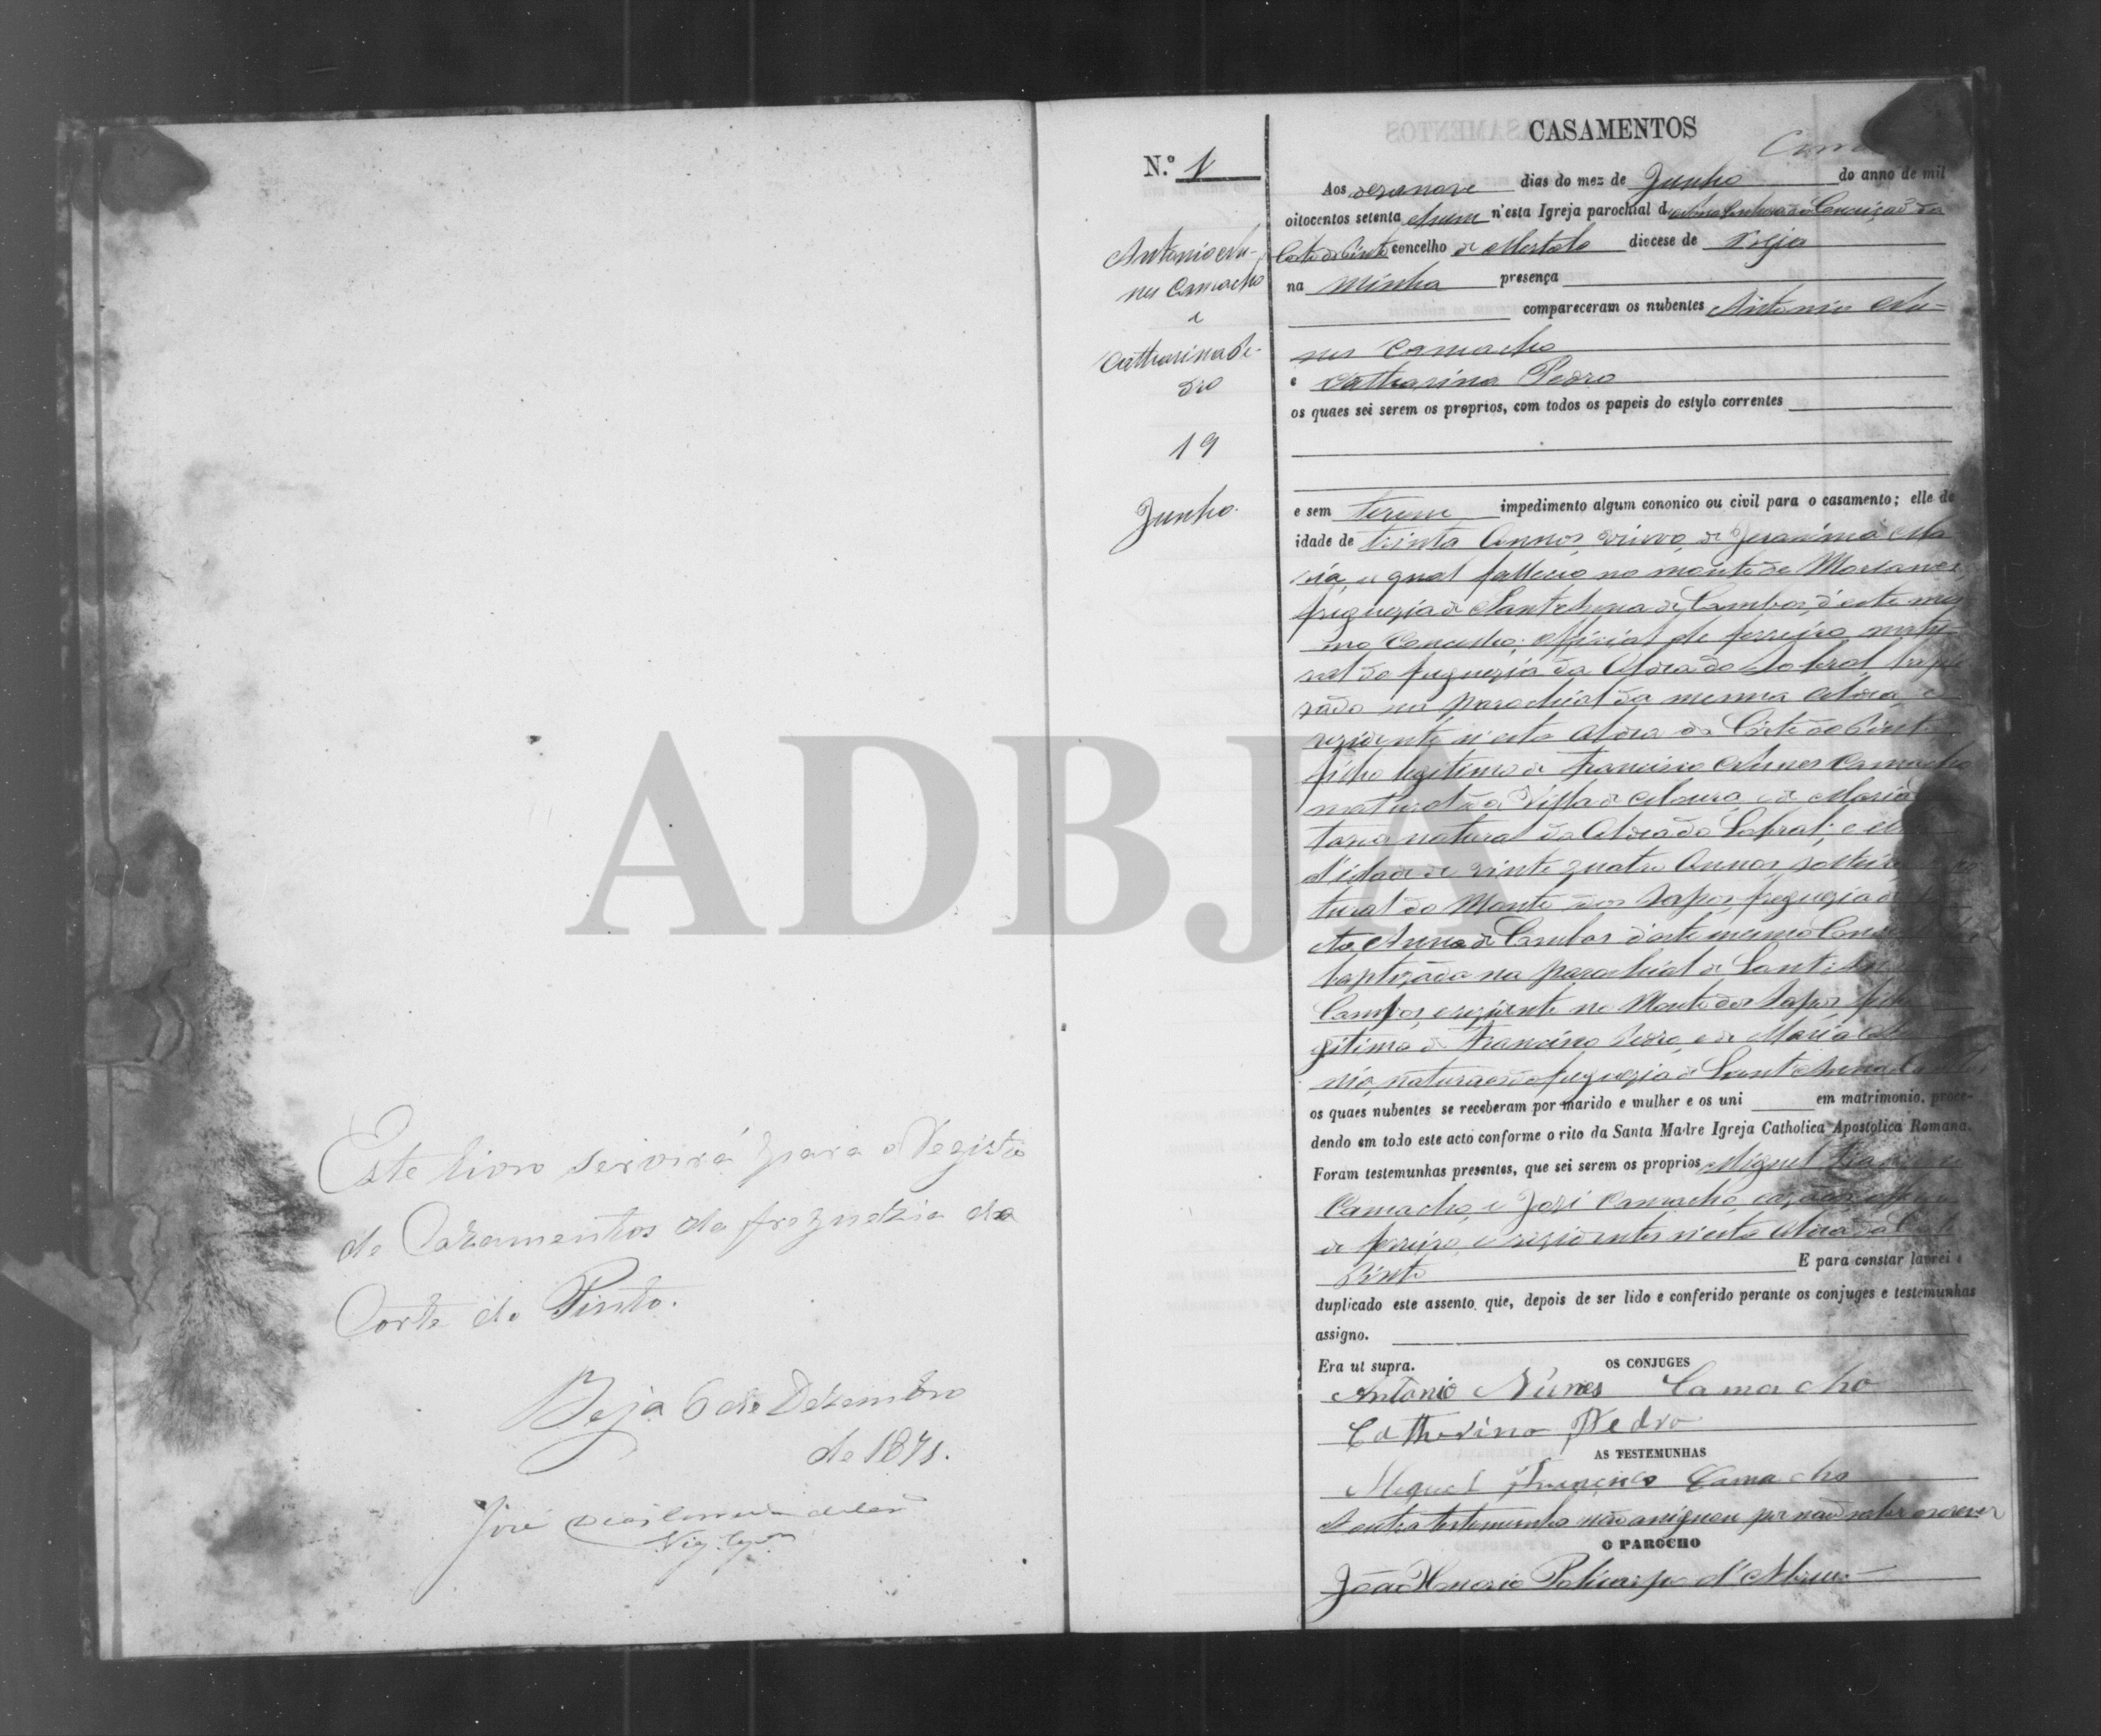 Este livro servirá para o Registo
de Cazamentos da freguezia da
Corte do Pinto.
Beja 6 de Dezembro
de 1871.
José
ADBJA
CASAMENTOS
N.º 1
Antonio Nu-
nes Camacho
e
Catharina Pe-
dro
19
Junho.
Aos dezanove dias do mez de Junho do anno de mil
oitocentos setenta e hum n'esta Igreja parochial de Nossa Senhora da Conceição da
Corte do Pinto concelho de Mertola diocese de Beja
na minha presença
compareceram os nubentes Antonio Nu-
nes Camacho
e Catharina Pedro
os quaes sei serem os proprios, com todos os papeis do estylo correntes
e sem terem impedimento algum cononico ou civil para o casamento; elle de
idade de trinta Annos, viuvo, de Jeronima Ma
ria, a qual falleceo no monte de
freguezia de Sant'Anna de Cambas, d'este mes
mo Concelho, Official de ferreiro, natu
ral da freguezia da Aldea do Sobral, bapti
zado na parochial da mesma Aldea, e
rezidente n'esta Aldea da Corte do Pinto
filho legitimo de Francisco Nunes Camacho
natural da Villa de Moura, e de Maria
natural da Aldea do Sobral; e ella
d'idade de vinte quatro Annos, solteira na
tural do Monte dos Sapos, freguezia de
Anna de Cambas d'este mesmo Concelho
baptizada na parochial de Sant'Anna
Cambas, e rezidente no Monte dos Sapos, filha
gitima de Francisco Pedro, e de Maria
naturaes da freguezia de Sant'Anna
os quaes nubentes se receberam por marido e mulher e os uni em matrimonio, proce-
dendo em todo este acto conforme o rito da Santa Madre Igreja Catholica Apostolica Romana.
Foram testemunhas presentes, que sei serem os proprios Miguel Francisco
Camacho, e José Camacho, cazados,
de ferreiro, e rezidentes n'esta Aldea da Corte
Pinto E para constar lavrei e
duplicado este assento, que, depois de ser lido e conferido perante os conjuges e testemunhas
assigno.
Era ut supra.
OS CONJUGES
Antonio Nunes Camacho
Catherina Pedro
AS TESTEMUNHAS
Miguel Francisco Camacho
A outra testemunha não assignou por não saber escrever
O PAROCHO
João Honorio Policarpo d'Abreu